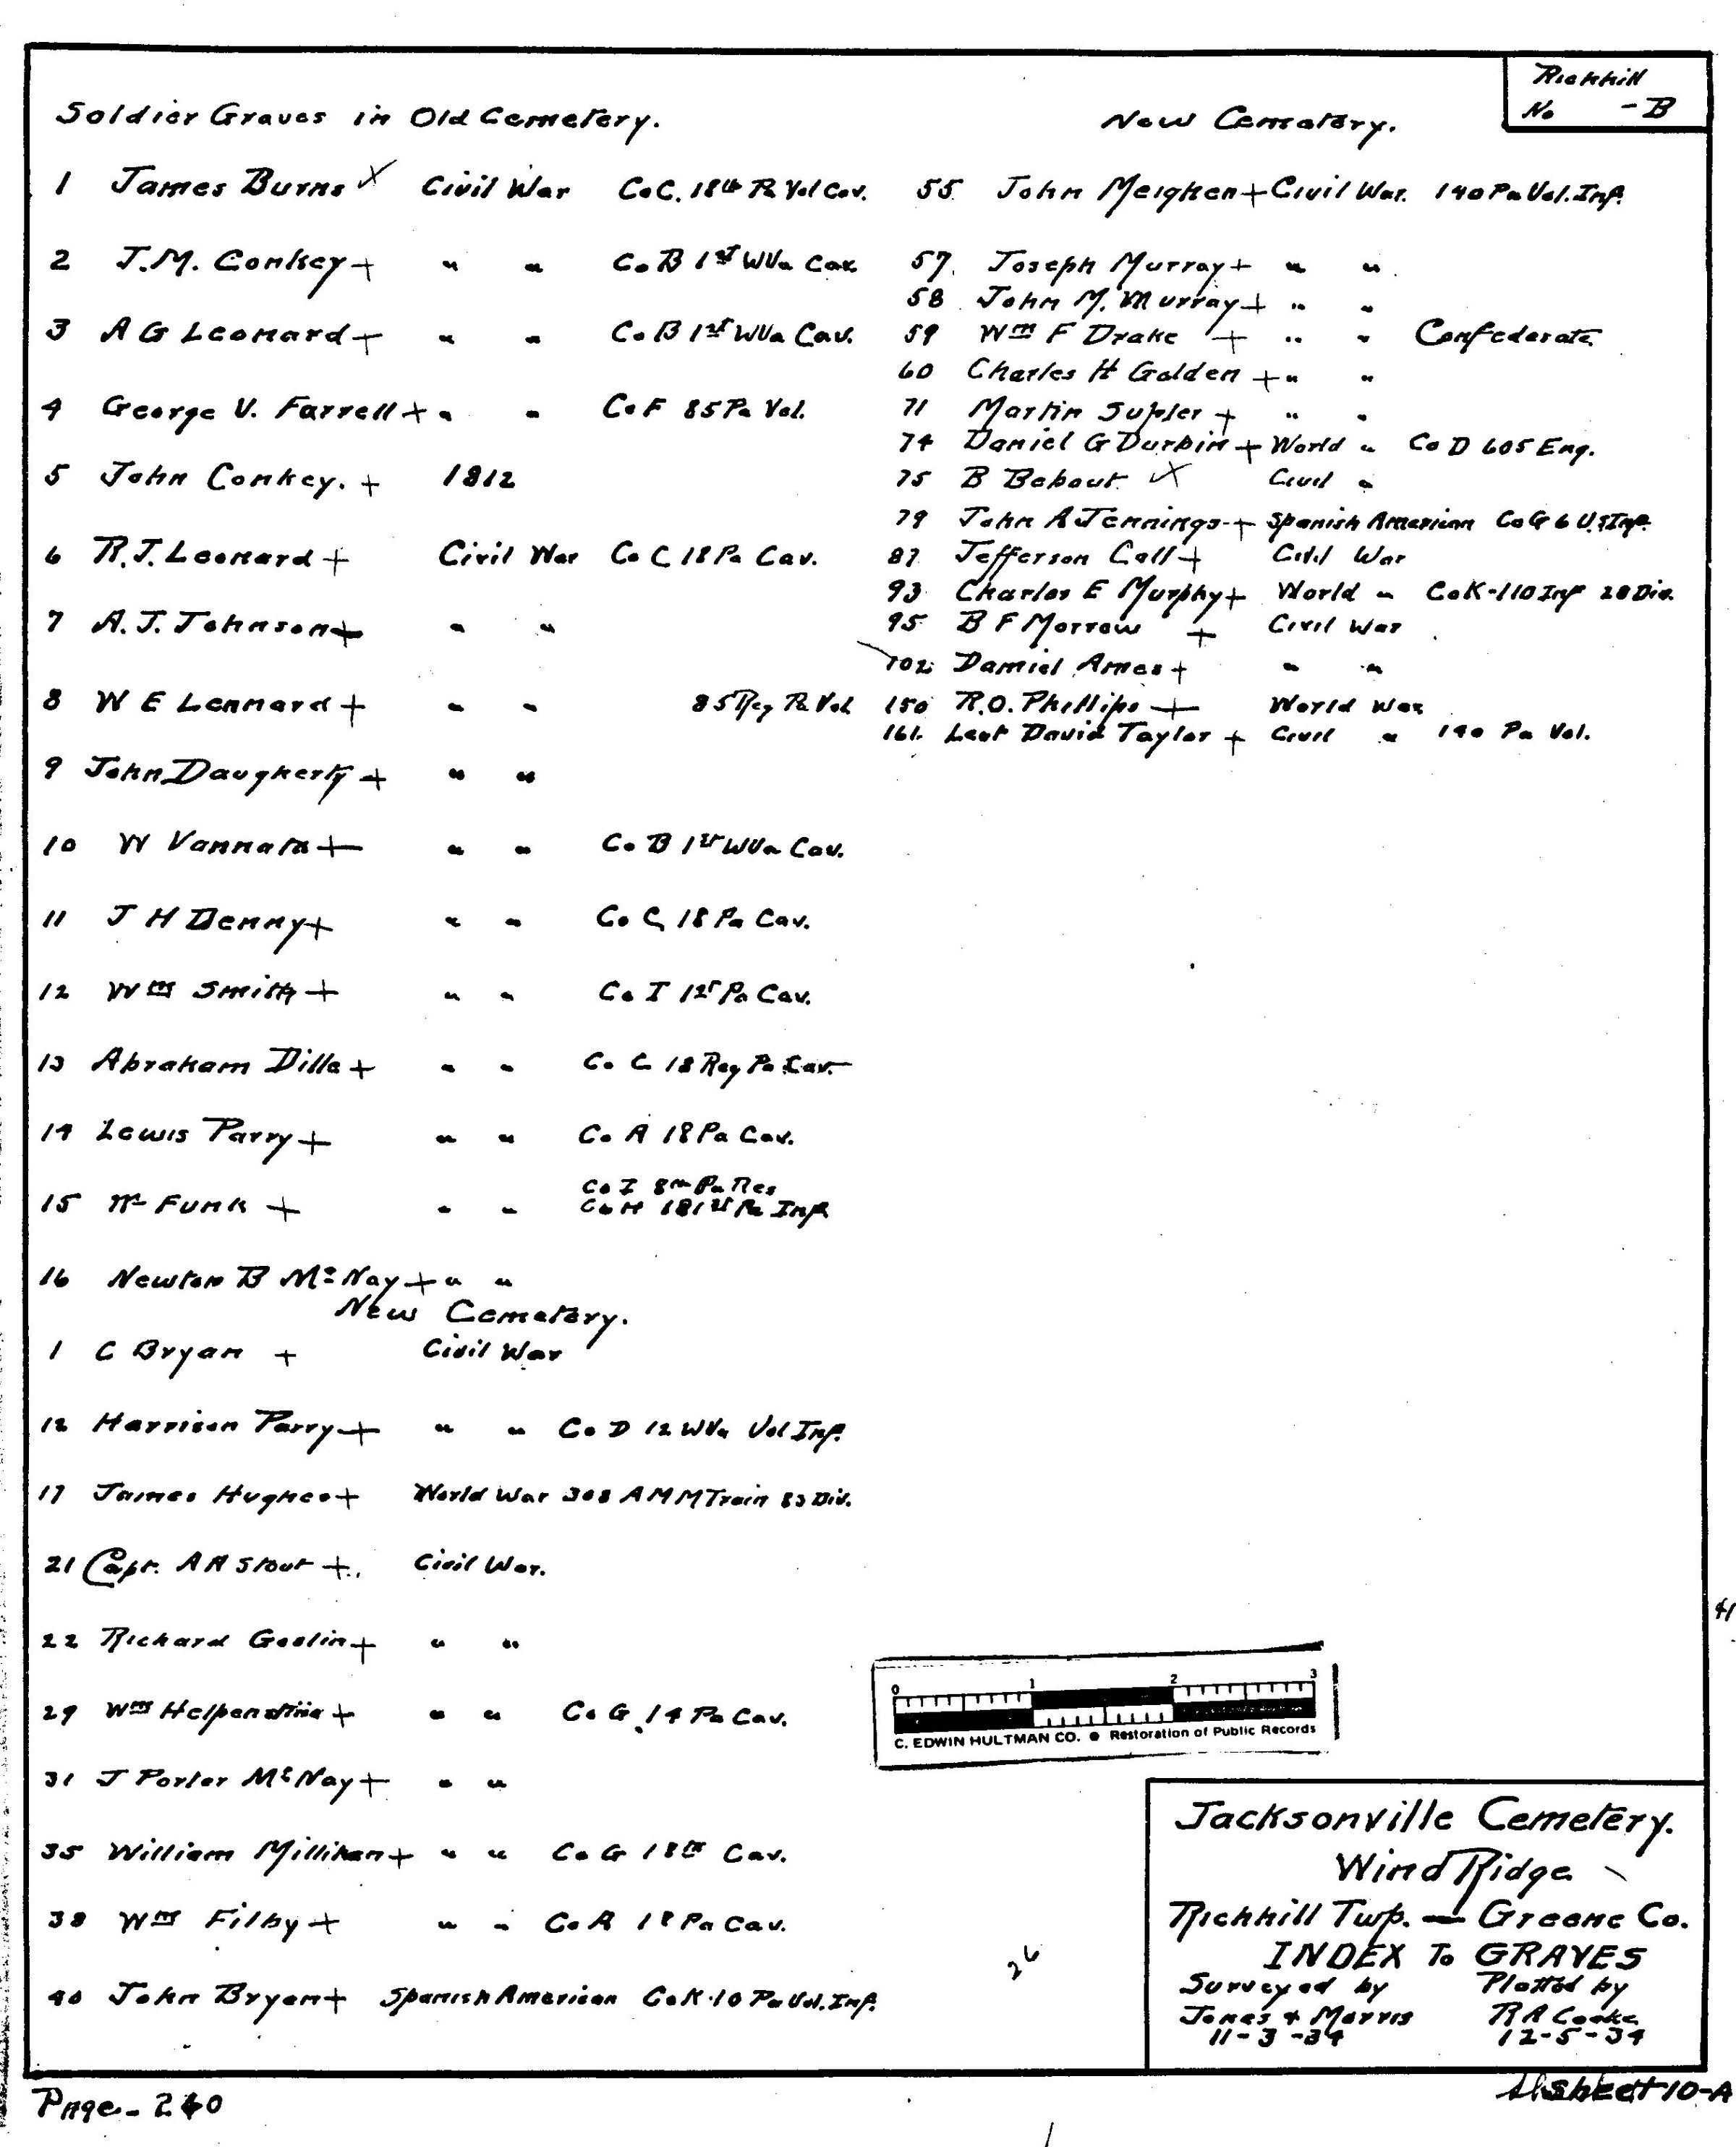 Richhill
No -B
Soldier Graves in Old Cemetery.
1 James Burns x Civil War Co C. 18th Pa Vol Cav.
2 J.M. Conkey + " " Co B 1st W Va Cav.
3 A G Leonard + " " Co B 1st W Va Cav.
4 George V. Farrell + " " Co F 85 Pa Vol.
5 John Conkey. + 1812
6 R.J. Leonard + Civil War Co C 18 Pa Cav.
7 A. J. Johnson + " "
8 W E Lennard + " " 85 Reg Pa Vol
9 John Daugherty + " "
10 W Vannata + " " Co B 1st W Va Cav.
11 J H Denny + " " Co C, 18 Pa Cav.
12 Wm Smith + " " Co I 1st Pa Cav.
13 Abraham Dille + " " Co C 18 Reg Pa Cav.
14 Lewis Parry + " " Co A 18 Pa Cav.
15 Funk + " " Co I 8th Pa Res
Co H 181st Pa Inf.
16 Newton B McNay + " "
New Cemetery.
1 C Bryan + Civil War
12 Harrison Parry + " " Co D 12 W Va Vol Inf.
17 James Hughes + World War 308 AMM Train 83 Div.
21 Capt. A A Stout + Civil War.
22 Richard Goslin + " "
29 Wm Helpenstine + " " Co G 14 Pa Cav.
31 J Porter McNay + " "
35 William Milliken + " " Co G 18th Cav.
38 Wm Filby + " " Co A 18 Pa Cav.
40 John Bryan + Spanish American Co K-10 Pa Vol. Inf.
New Cemetery.
55 John Meighen + Civil War. 140 Pa Vol. Inf.
57. Joseph Murray + " "
58 John M. Murray + " "
59 Wm F Drake + " " Confederate
60 Charles H Golden + " "
71 Martin Supler + " "
74 Daniel G Durbin + World " Co D 605 Eng.
75 B Bebout x Civil "
79 John A Jennings + Spanish American Co G 6 U.S Inf.
87 Jefferson Call + Civil War
93 Charles E Murphy + World " Co K-110 Inf 28 Div.
95 B F Morrow + Civil War
102 Daniel Ames + " "
150 R.O. Phillips + World War
161. Leut David Taylor + Civil " 140 Pa Vol.
41
0 1 2 3
C. EDWIN HULTMAN CO. ● Restoration of Public Records
26
Jacksonville Cemetery.
Wind Ridge
Richhill Twp. — Greene Co.
INDEX To GRAVES
Surveyed by Plotted by
Jones & Morris R A Cooke
11-3-34 12-5-34
Page - 240
sheet 10-A